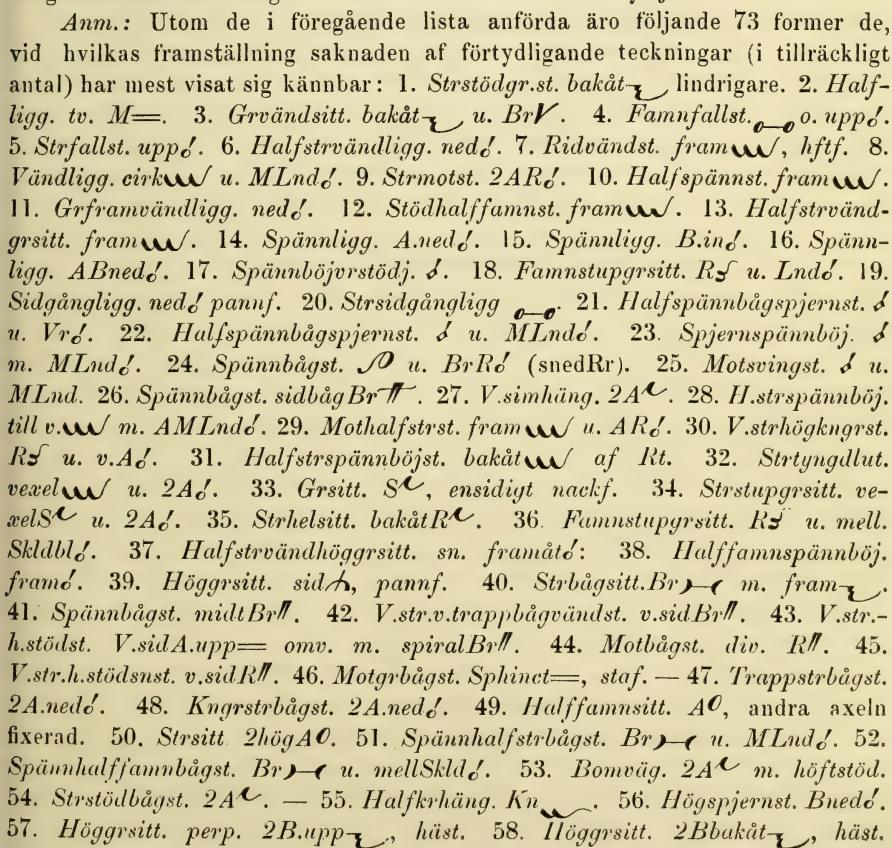 Anm.: Utom de i föregående lista anförda äro följande 73 former de,
vid hvilkas framställning saknaden af förtydligande teckningar (i tillräckligt
antal) har mest visat sig kännbar: 1. Strstödgr.st. bakåt lindrigare. 2. Half-
ligg. tv. M=. 3. Grvändsitt. bakåt u. Br. 4. Famnfallst. o. upp.
5. Strfallst. upp. 6. Halfstrvändligg. ned. 7. Ridvändst. fram, hftf. 8.
Vändligg. cirk u. MLnd. 9. Strmotst. 2AR. 10. Halfspännst. fram.
11. Grframvändligg. ned. 12. Stödhalffamnst. fram. 13. Halfstrvänd-
grsitt. fram. 14. Spännligg. A.ned. 15. Spännligg. B.in. 16. Spänn-
ligg. ABned. 17. Spännböjvrstödj. 18. Famnstupgrsitt. R u. Lnd. 19.
Sidgångligg. ned pannf. 20. Strsidgångligg. 21. Halfspännbågspjernst.
u. Vr. 22. Halfspännbågspjernst. u. MLnd. 23. Spjernspännböj.
m. MLnd. 24. Spännbågst. u. BrR (snedRr). 25. Motsvingst. u.
MLnd. 26. Spännbågst. sidbågBr. 27. V.simhäng. 2A. 28. H.strspännböj.
till v. m. AMLnd. 29. Mothalfstrst. fram u. AR. 30. V.strhögkngrst.
R u. v.A. 31. Halfstrspännböjst. bakåt af Rt. 32. Strtyngdlut.
vexel u. 2A. 33. Grsitt. S, ensidigt nackf. 34. Strstupgrsitt. ve-
xelS u. 2A. 35. Strhelsitt. bakåtR. 36. Famnstupgrsitt. R u. mell.
Skldbl. 37. Halfstrvändhöggrsitt. sn. framåt: 38. Halffamnspännböj.
fram. 39. Höggrsitt. sid, pannf. 40. Strbågsitt.Br m. fram.
41. Spännbågst. midtBr. 42. V.str.v.trappbågvändst. v.sidBr. 43. V.str.-
h.stödst. V.sidA.upp= omv. m. spiralBr. 44. Motbågst. div. R. 45.
V.str.h.stödsnst. v.sidR. 46. Motgrbågst. Sphinct=, staf. — 47. Trappstrbågst.
2A.ned. 48. Kngrstrbågst. 2A.ned. 49. Halffamnsitt. A, andra axeln
fixerad. 50. Strsitt 2högA. 51. Spännhalfstrbågst. Br u. MLnd. 52.
Spännhalffamnbågst. Br u. mellSkld. 53. Bomväg. 2A m. höftstöd.
54. Strstödbågst. 2A. — 55. Halfkrhäng. Kn. 56. Högspjernst. Bned.
57. Höggrsitt. perp. 2B.upp, häst. 58. Höggrsitt. 2Bbakåt, häst.